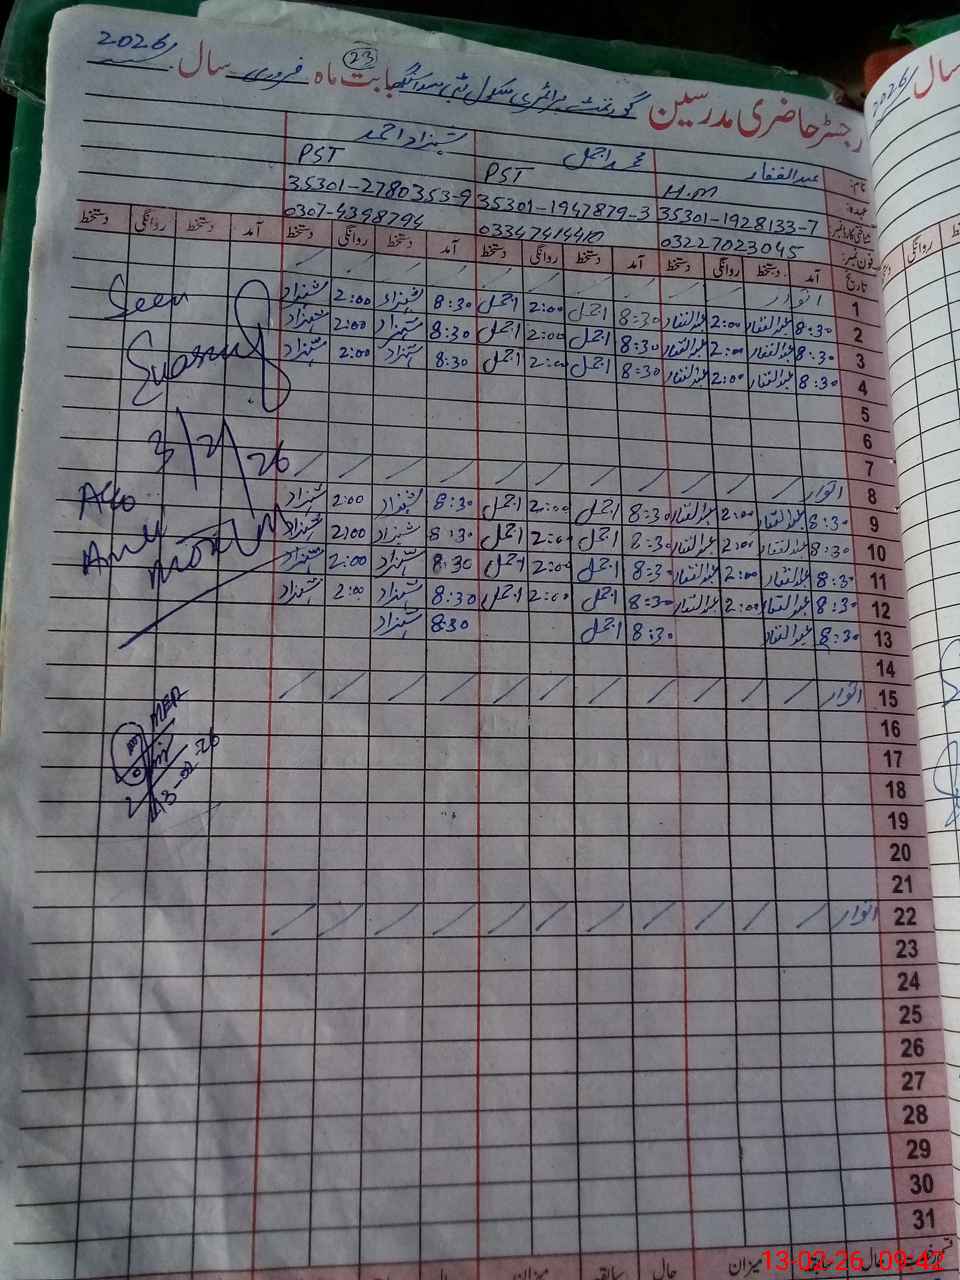 رجسٹر حاضری مدرسین گورنمنٹ پرائمری سکول بابت ماہ فروری سال 2026
23
نام: عبدالغفار محمد اجمل شہزاد احمد
عہدہ: H.M PST PST
شناختی کارڈ نمبر 35301-1928133-7 35301-1947879-3 35301-2780353-9
فون نمبر: 03227023045 03347414410 0307-4398794
تاریخ آمد دستخط روانگی دستخط آمد دستخط روانگی دستخط آمد دستخط روانگی دستخط آمد دستخط روانگی دستخط
1 اتوار
2 8:30 عبدالغفار 2:00 عبدالغفار 8:30 اجمل 2:00 اجمل 8:30 شہزاد 2:00 شہزاد
3 8:30 عبدالغفار 2:00 عبدالغفار 8:30 اجمل 2:00 اجمل 8:30 شہزاد 2:00 شہزاد
4 8:30 عبدالغفار 2:00 عبدالغفار 8:30 اجمل 2:00 اجمل 8:30 شہزاد 2:00 شہزاد
5
6
7
8 اتوار
9 8:30 عبدالغفار 2:00 عبدالغفار 8:30 اجمل 2:00 اجمل 8:30 شہزاد 2:00 شہزاد
10 8:30 عبدالغفار 2:00 عبدالغفار 8:30 اجمل 2:00 اجمل 8:30 شہزاد 2:00 شہزاد
11 8:30 عبدالغفار 2:00 عبدالغفار 8:30 اجمل 2:00 اجمل 8:30 شہزاد 2:00 شہزاد
12 8:30 عبدالغفار 2:00 عبدالغفار 8:30 اجمل 2:00 اجمل 8:30 شہزاد 2:00 شہزاد
13 8:30 عبدالغفار 8:30 اجمل 8:30 شہزاد
14
15 اتوار
16
17
18
19
20
21
22 اتوار
23
24
25
26
27
28
29
30
31
Seen
3/2/26
MEA
13-02-26
میزان حال سابقہ میزان حال سابقہ
سال 2026
روانگی
13-02-26 09:42